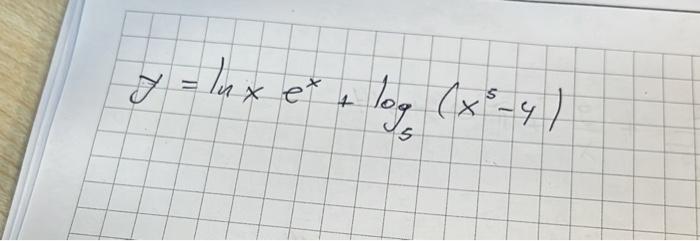 y = ln x e^x + log_5 (x^5 - 4)